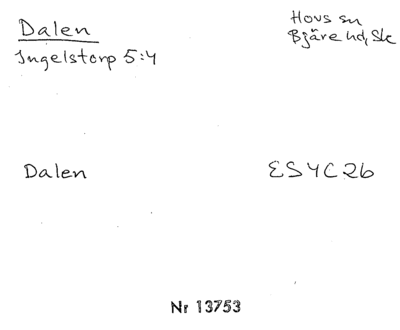 Dalen
Hovs sn
Ingelstorp 5:4
Bjäre hd, Sk
Dalen
ES4C2b
Nr 13753